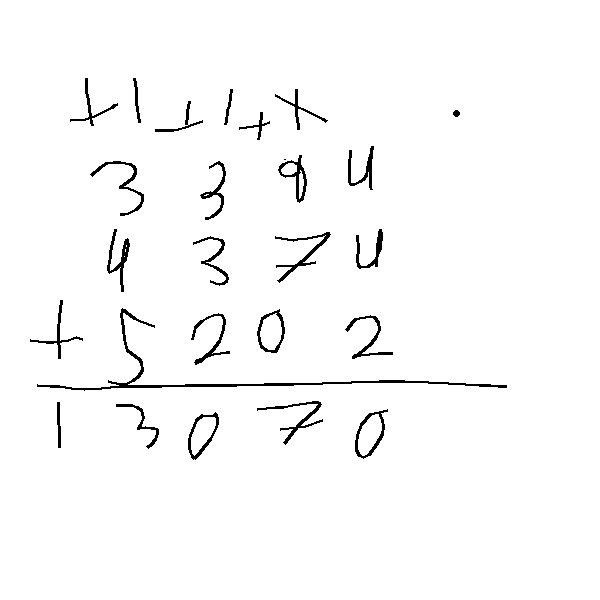 +1+1++
3394
4374
+5202
13070